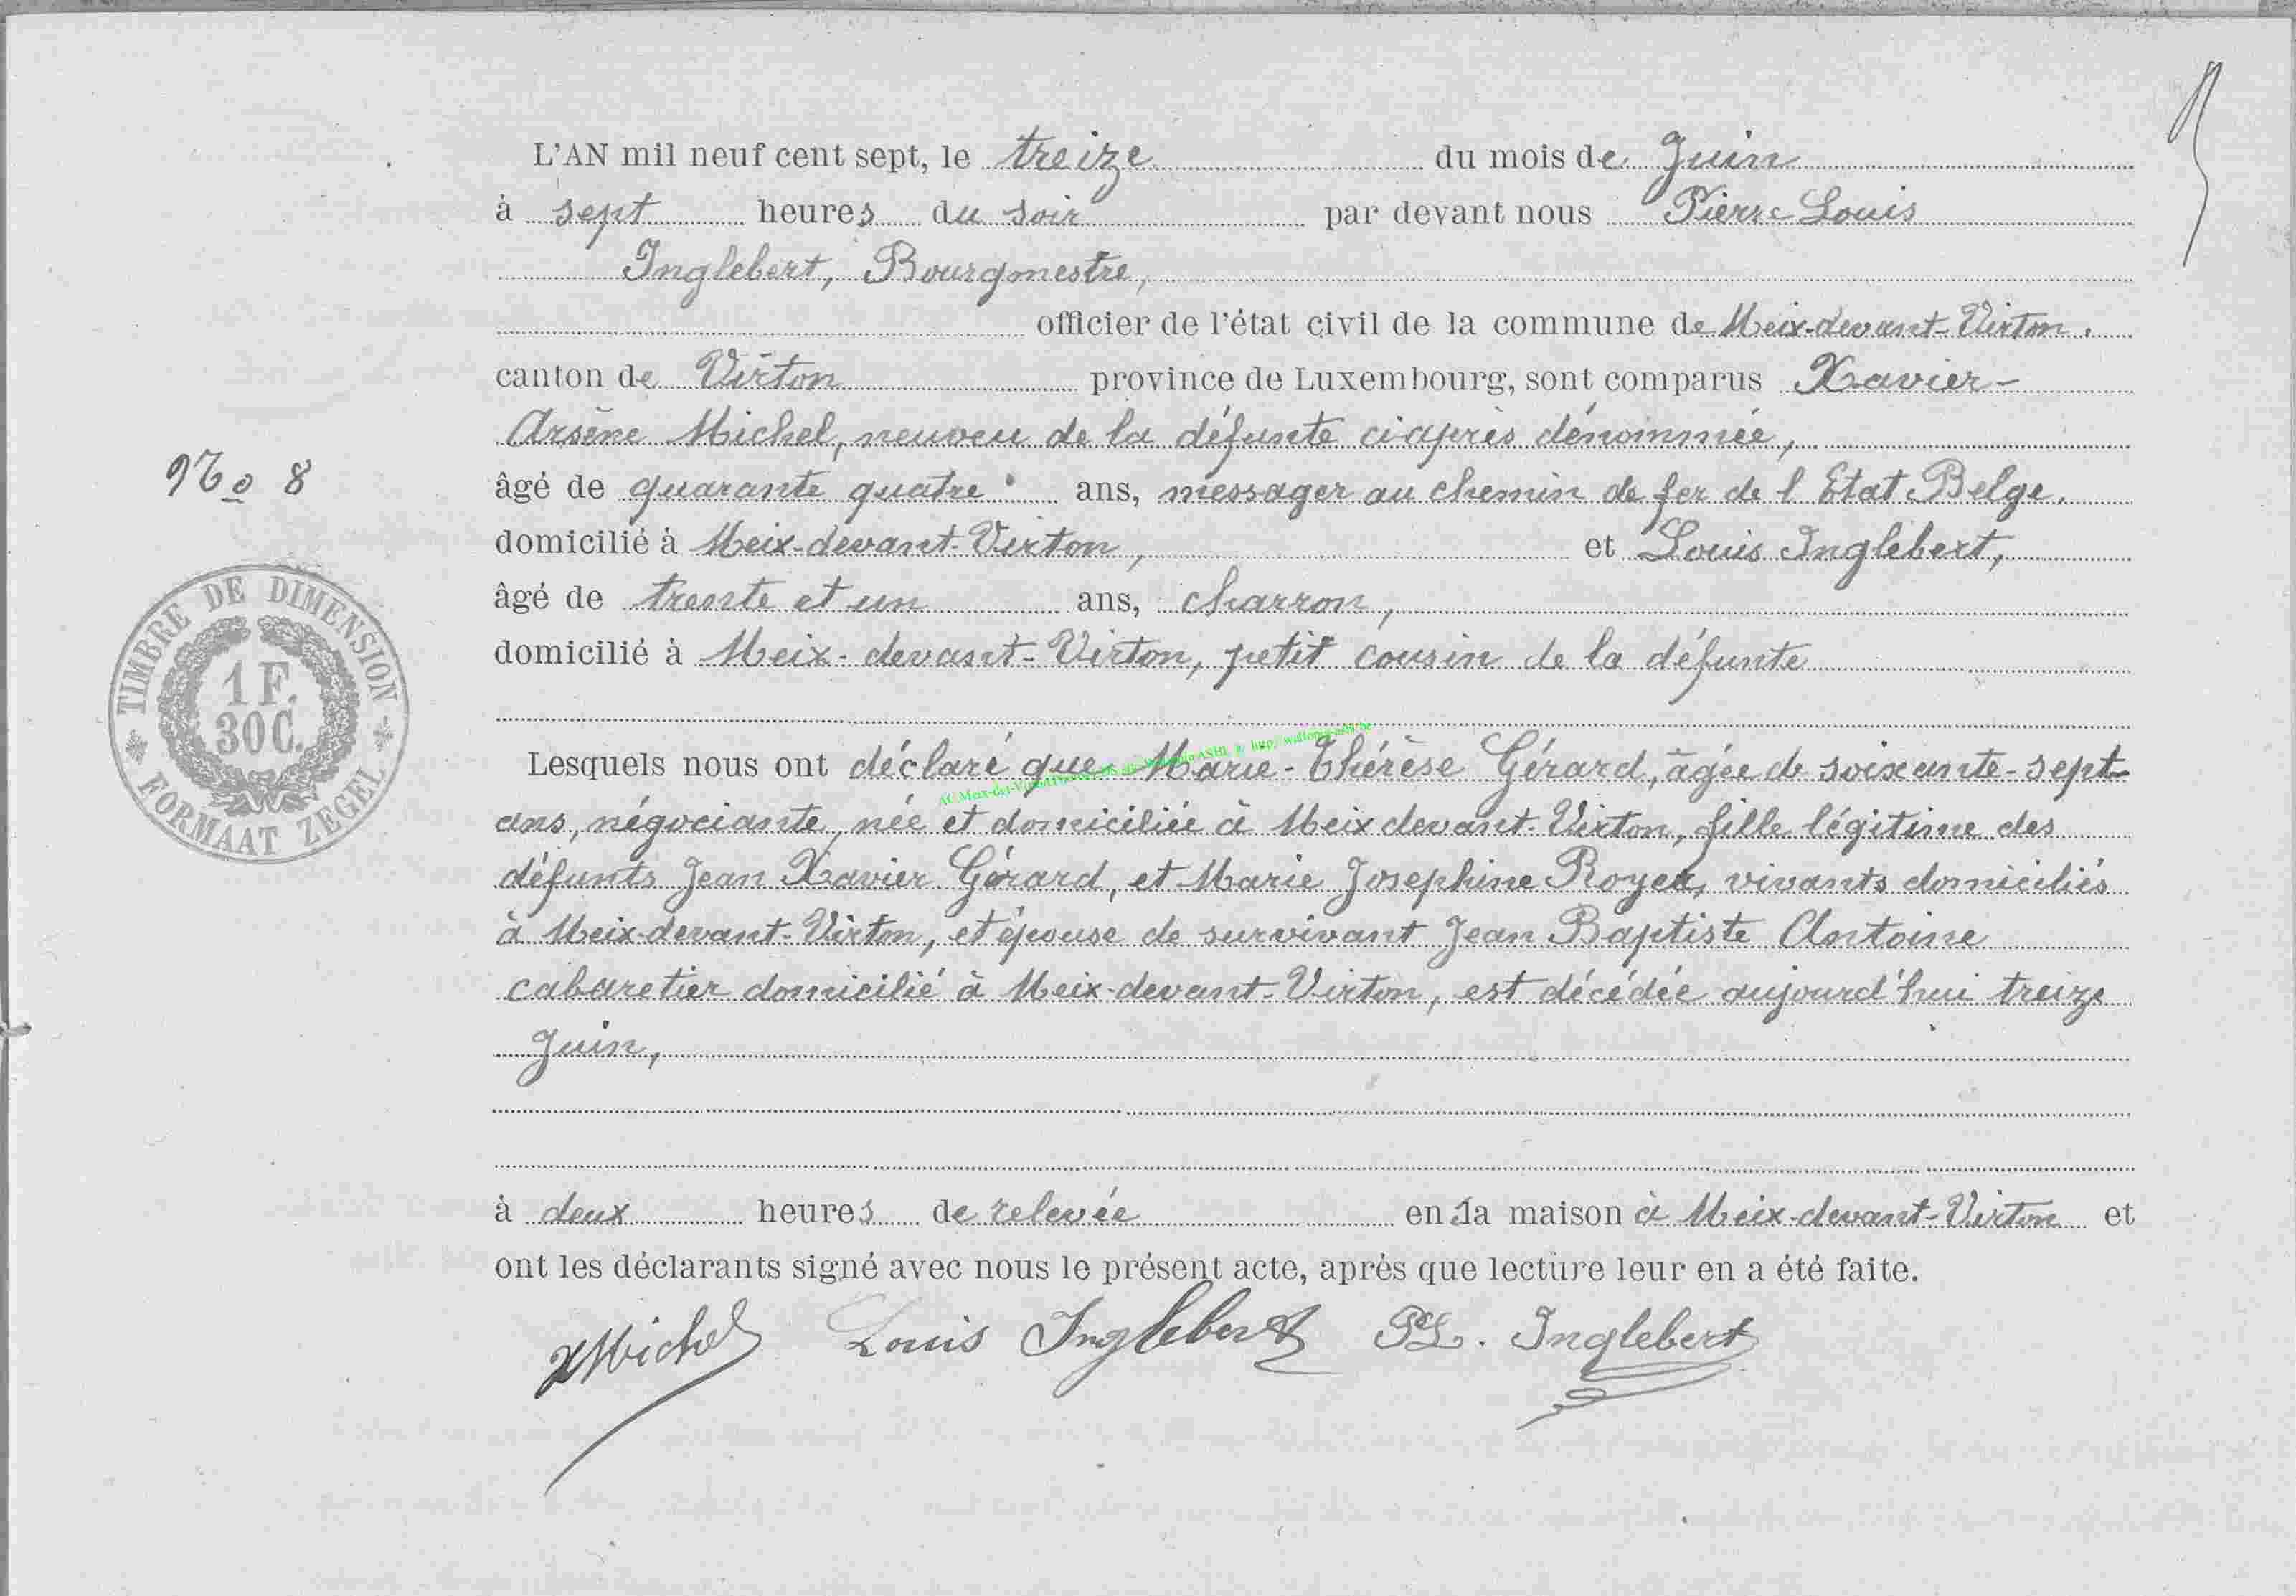 L'AN mil neuf cent sept, le treize du mois de Juin
à sept heures du soir par devant nous Pierre Louis
Inglebert, Bourgmestre,
officier de l'état civil de la commune de Meix-devant-Virton.
canton de Virton province de Luxembourg, sont comparus Xavier-
Arsène Michel, neuveu de la défunte ci-après dénommée,
âgé de quarante quatre ans, messager au chemin de fer de l'Etat Belge.
No 8
domicilié à Meix-devant-Virton, et Louis Inglebert,
âgé de trente et un ans, charron,
domicilié à Meix-devant-Virton, petit cousin de la défunte
TIMBRE DE DIMENSION
1 F.
30 C.
FORMAAT ZEGEL
Lesquels nous ont déclaré que Marie-Thérèse Gérard, âgée de soixante-sept
ans, négociante, née et domiciliée à Meix devant-Virton, fille légitime des
défunts Jean Xavier Gérard, et Marie Josephine Royer, vivants domiciliés
à Meix-devant-Virton, et épouse de survivant Jean Baptiste Antoine
cabaretier domicilié à Meix-devant-Virton, est décédée aujourd'hui treize
Juin,
à deux heures de relevée en sa maison à Meix-devant-Virton et
ont les déclarants signé avec nous le présent acte, après que lecture leur en a été faite.
XMichel Louis Inglebert PL. Inglebert